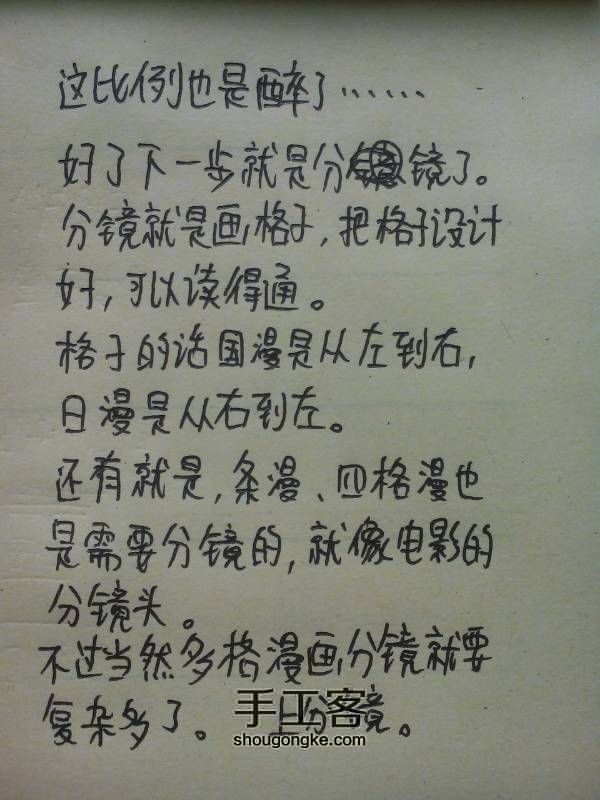 这比例也是醉了……
好了下一步就是分镜了。
分镜就是画格子，把格子设计
好，可以读得通。
格子的话国漫是从左到右，
日漫是从右到左。
还有就是，条漫、四格漫也
是需要分镜的，就像电影的
分镜头。
不过当然多格漫画分镜就要
复杂多了。上分镜。
手工客
shougongke.com